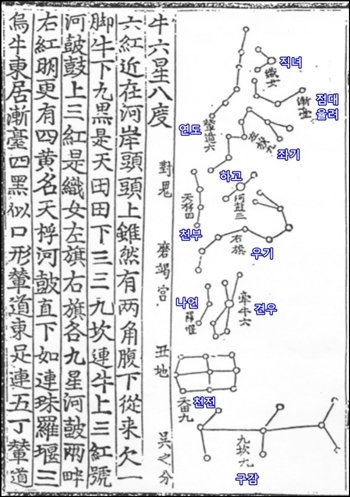 직녀
織女
점대
올러
漸臺
연도
輦道六
左旗九
좌기
하고
河鼓三
천부
天桴四
右旗
우기
나언
羅堰
견우
牽牛六
천전
天田九
九坎九
구감
對見 磨竭宮 丑地 吳之分
牛六星八度
六紅近在河岸頭頭上雖然有兩角腹下從来欠一
脚牛下九黑是天田田下三三九坎連牛上三紅號
河鼓鼓上三紅是織女左旗右旗各九星河鼓兩畔
右紅明更有四黃名天桴河鼓直下如連珠羅堰三
烏牛東居漸臺四黑似口形輦道東足連五丁輦道